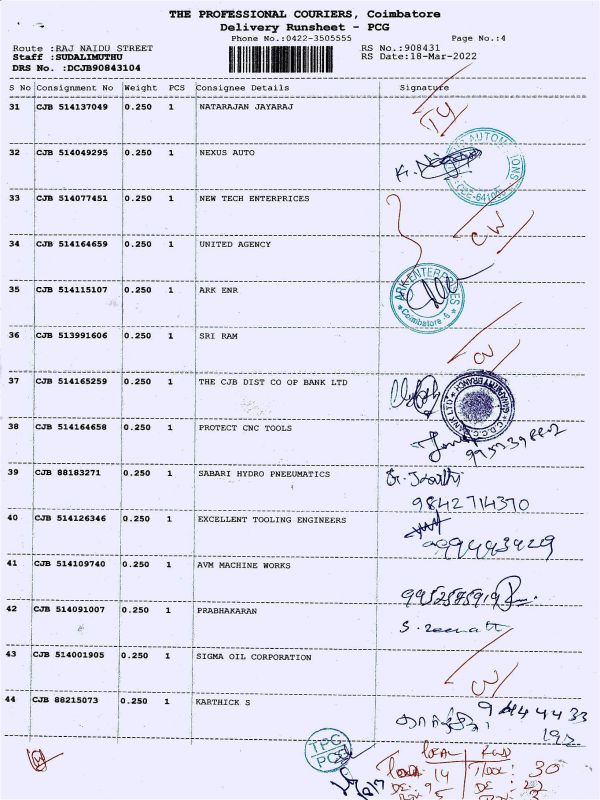 THE PROFESSIONAL COURIERS, Coimbatore
Delivery Runsheet - PCG
Phone No.:0422-3505555 Page No.:4
Route :RAJ NAIDU STREET RS No.:908431
Staff :SUDALIMUTHU RS Date:18-Mar-2022
DRS No. :DCJB90843104
S No Consignment No Weight PCS Consignee Details Signature
31 CJB 514137049 0.250 1 NATARAJAN JAYARAJ
32 CJB 514049295 0.250 1 NEXUS AUTO
33 CJB 514077451 0.250 1 NEW TECH ENTERPRICES
34 CJB 514164659 0.250 1 UNITED AGENCY
35 CJB 514115107 0.250 1 ARK ENR
ARK ENTERPRISES
* Coimbatore - 6 *
36 CJB 513991606 0.250 1 SRI RAM
37 CJB 514165259 0.250 1 THE CJB DIST CO OP BANK LTD
38 CJB 514164658 0.250 1 PROTECT CNC TOOLS
39 CJB 88183271 0.250 1 SABARI HYDRO PNEEUMATICS
9842714370
40 CJB 514126346 0.250 1 EXCELLENT TOOLING ENGINEERS
41 CJB 514109740 0.250 1 AVM MACHINE WORKS
42 CJB 514091007 0.250 1 PRABHAKARAN
43 CJB 514001905 0.250 1 SIGMA OIL CORPORATION
44 CJB 88215073 0.250 1 KARTHICK S
TPC
PCG